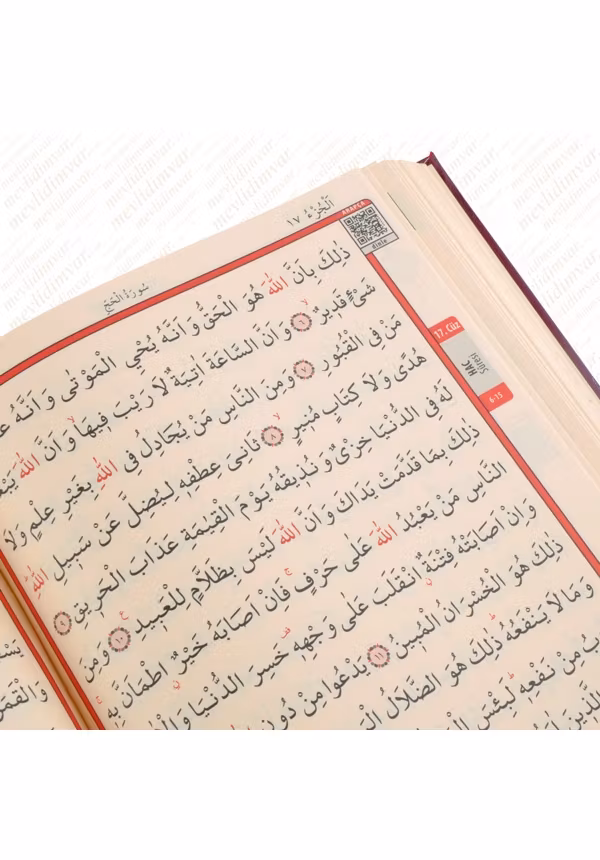 اَلْجُزْءُ ١٧
سُورَةُ الْحَجِّ
ARAPÇA
Dinle
ذٰلِكَ بِاَنَّ اللّٰهَ هُوَ الْحَقُّ وَاَنَّهُ يُحْيِ الْمَوْتٰى وَاَنَّهُ
شَيْءٍ قَدِيرٌ ٦ وَاَنَّ السَّاعَةَ اٰتِيَةٌ لَا رَيْبَ فِيهَا وَاَنَّ اللّٰهَ
مَنْ فِي الْقُبُورِ ٧ وَمِنَ النَّاسِ مَنْ يُجَادِلُ فِي اللّٰهِ بِغَيْرِ عِلْمٍ وَلَا
هُدًى وَلَا كِتَابٍ مُنِيرٍ ٨ ثَانِيَ عِطْفِهِ لِيُضِلَّ عَنْ سَبِيلِ اللّٰهِ
لَهُ فِي الدُّنْيَا خِزْيٌ وَنُذِيقُهُ يَوْمَ الْقِيٰمَةِ عَذَابَ الْحَرِيقِ ٩
ذٰلِكَ بِمَا قَدَّمَتْ يَدَاكَ وَاَنَّ اللّٰهَ لَيْسَ بِظَلَّامٍ لِلْعَبِيدِ ١٠ وَمِنَ
النَّاسِ مَنْ يَعْبُدُ اللّٰهَ عَلٰى حَرْفٍ فَاِنْ اَصَابَهُ خَيْرٌ اطْمَاَنَّ بِهِ
وَاِنْ اَصَابَتْهُ فِتْنَةٌ انْقَلَبَ عَلٰى وَجْهِهِ خَسِرَ الدُّنْيَا
ذٰلِكَ هُوَ الْخُسْرَانُ الْمُبِينُ ١١ يَدْعُوا مِنْ دُونِ
وَمَا لَا يَنْفَعُهُ ذٰلِكَ هُوَ الضَّلَالُ
مِنْ نَفْعِهِ لَبِئْسَ
الَّذِينَ
17. Cüz
HAC
Sûresi
6-15
وَالْقَمَرُ